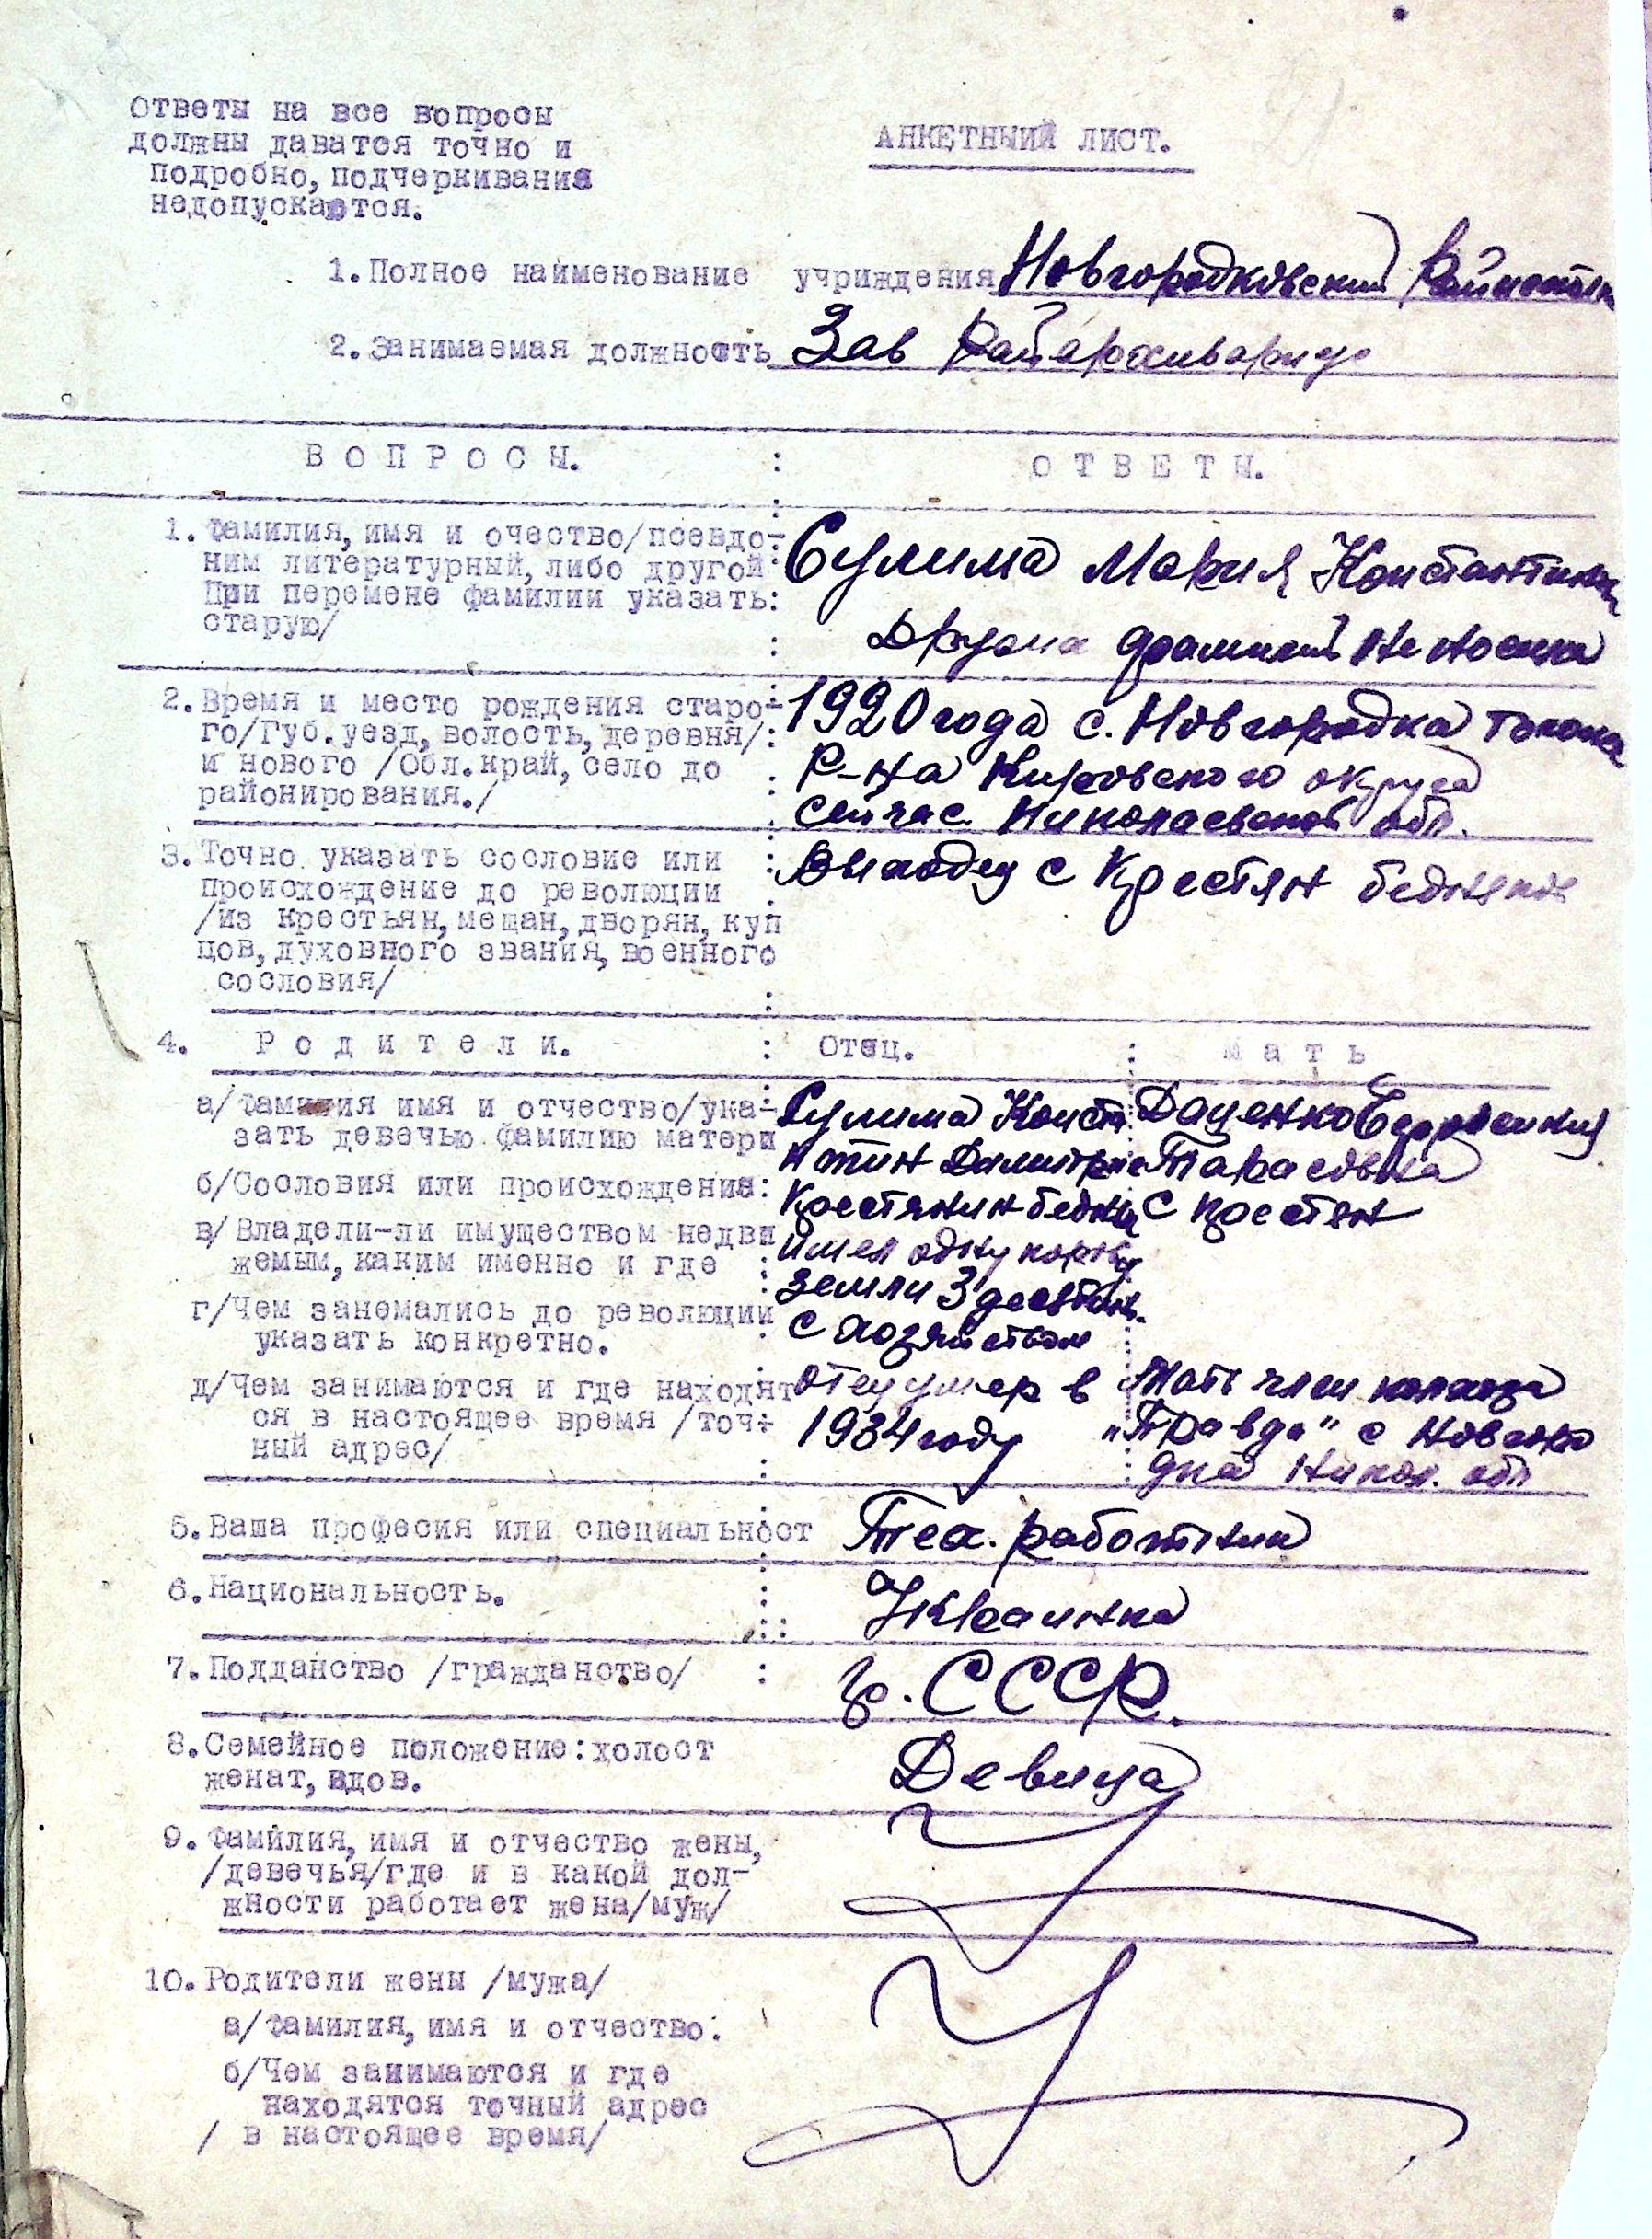 Ответы на все вопросы
должны даватся точно и
подробно, подчеркивание
недопускаются.
АНКЕТНЫИЙ ЛИСТ.
1. Полное наименование учриждения Новгородковский
2. Занимаемая должность Зав
ВОПРОСЫ. : ОТВЕТЫ.
1. Фамилия, имя и очество/псевдо-
ним литературный, либо другой
При перемене фамилии указать:
старую/
Сулима Мария
фамилий не
2. Время и место рождения старо-
го/Губ. уезд, волость, деревня/:
и нового /Обл. край, село до
районирования./
1920 года с. Новгородка
Р-на Кировского округа
сейчас Николаевской обл.
3. Точно указать сословие или
происхождение до революции
/из крестьян, мещан, дворян, куп
цов, духовного звания, военного
сословия/
Выходец с Крестян
4. Родители. : Отец. : мать
а/Фамилия имя и отчество/ука-
зать девечью фамилию матери
б/Сословия или происхождение:
в/Владели-ли имуществом недви
жемым, каким именно и где
г/Чем занемались до революции
указать конкретно.
д/Чем занимаются и где находят
ся в настоящее время /точ-
ный адрес/
Сулима Конста
нтин
Крестянин
имел одну корову
земли 3
с хозяйством
отец умер в
1934 году
Даценко
Тарасовна
с крестян
Мать член колхоза
"Правда" с Новгоро
дка Никол. обл
5. Ваша професия или специальност Тех. работник
6. Национальность. Украинка
7. Подданство /гражданство/ : гр. СССР.
8. Семейное положение: холост
женат, вдов.
Девица
9. Фамилия, имя и отчество жены,
/девечья/где и в какой дол-
жности работает жена/муж/
10. Родители жены /мужа/
а/Фамилия, имя и отчество:
б/Чем занимаются и где
находятся точный адрес
/ в настоящее время/